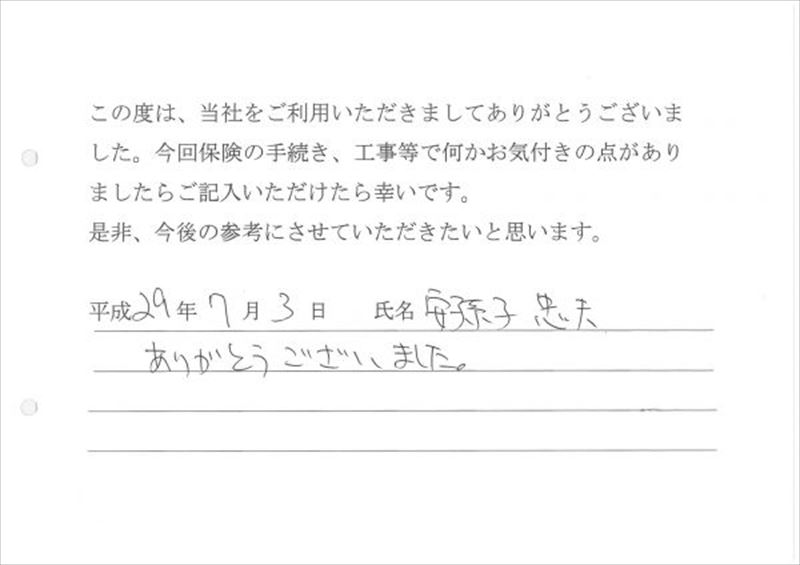 この度は、当社をご利用いただきましてありがとうございま
した。今回保険の手続き、工事等で何かお気付きの点があり
ましたらご記入いただけたら幸いです。
是非、今後の参考にさせていただきたいと思います。
平成29年7月3日 氏名 安孫子 忠夫
ありがとうございました。